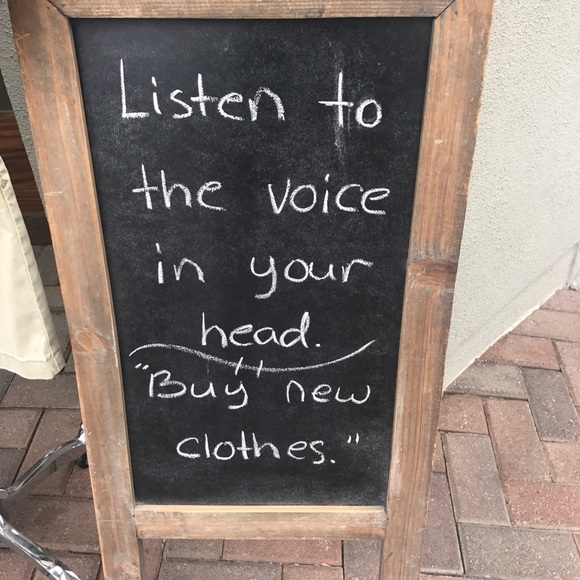 Listen to
the voice
in your
head.
"Buy new
clothes."